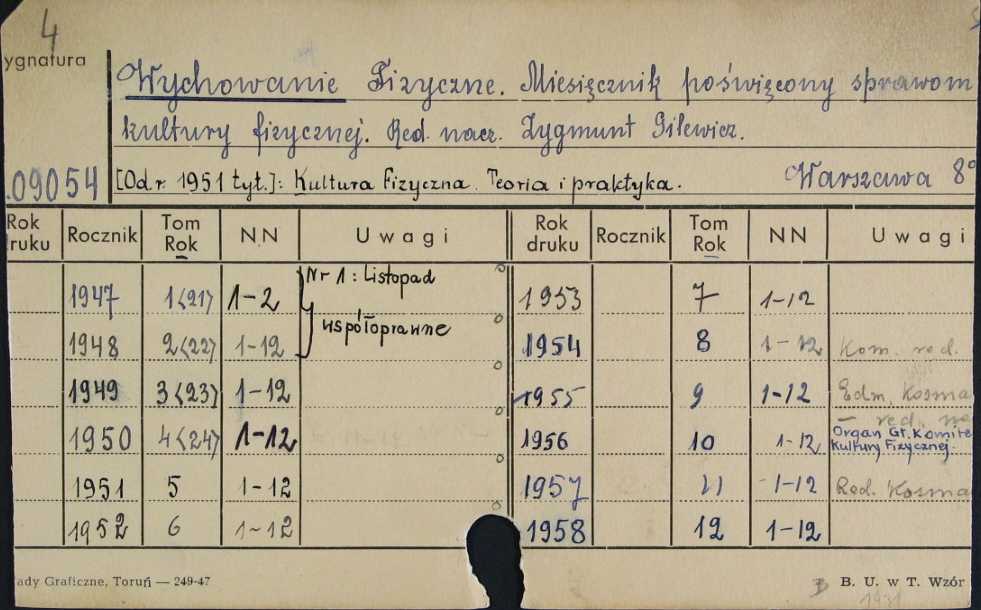 4
ygnatura
Wychowanie Fizyczne. Miesięcznik poświęcony sprawom
kultury fizycznej. Red. nacz. Zygmunt Gilewicz.
.09054 [Od r. 1951 tyt.]: Kultura Fizyczna. Teoria i praktyka. Warszawa 8°
Rok ruku Rocznik Tom Rok NN Uwagi Rok druku Rocznik Tom Rok NN Uwagi
1947 1<21> 1-2 Nr 1: Listopad 1953 7 1-12
współoprawne
1948 2<22> 1-12 1954 8 1-12 Kom. red.
1949 3<23> 1-12 1955 9 1-12 Edm. Kosma
— red. na
1950 4<24> 1-12 1956 10 1-12 Organ Gł. Komite
Kultury Fizycznej.
1951 5 1-12 1957 11 1-12 Red. Kosma
1952 6 1-12 1958 12 1-12
ady Graficzne, Toruń — 249-47 B. U. w T. Wzór